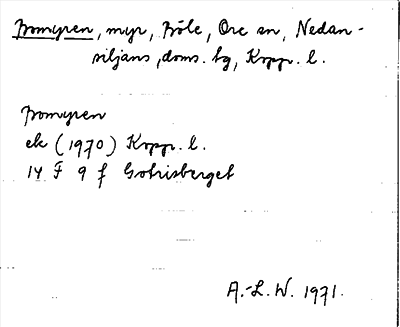 Bromyren, myr, Böle, Ore sn, Nedan-
siljans, doms. hg, Kopp. l.
Bromyren
ek (1970) Kopp. l.
14 F 9 f Gotrisberget
A.-L. W. 1971.